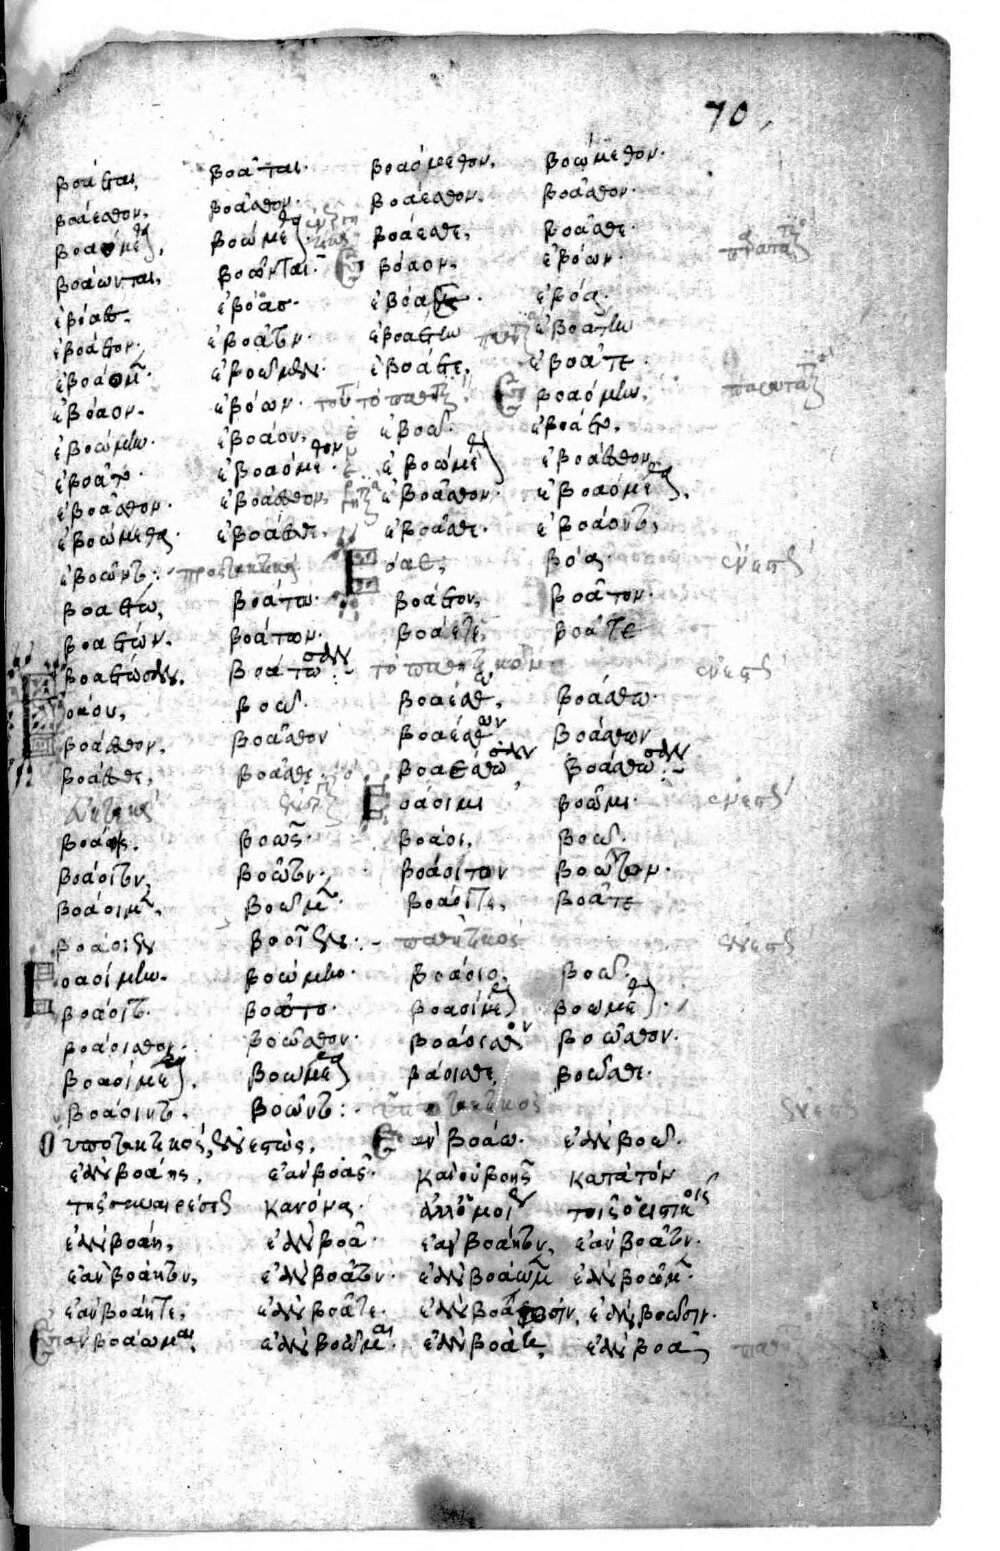 70
βοάεται, βοᾶται· βοαόμεθον, βοώμεθον·
βοάεσθον, βοᾶσθον· βοάεσθον, βοᾶσθον·
βοαόμεθα, βοώμεθα· βοάεσθε, βοᾶσθε· παρατατι
βοάωνται, βοῶνται· ἐβόαον, ἐβόων·
ἐβόαες, ἐβόας· ἐβόαε· ἐβόα·
ἐβοάετον· ἐβοᾶτον· ἐβοαέτην ἐβοάτην
ἐβοάομεν· ἐβοῶμεν· ἐβοάετε, ἐβοᾶτε·
ἐβόαον· ἐβόων· τοῦ τὸ παθητι ἐβοαόμην, παρατατι
ἐβοώμην· ἐβοάου, ἐβοῶ· ἐβοάετο,
ἐβοᾶτο· ἐβοαόμεθον· ἐβοώμεθον ἐβοάεσθον,
ἐβοᾶσθον· ἐβοάεσθον, ἐβοᾶσθον· ἐβοαόμεθα,
ἐβοώμεθα· ἐβοάεσθε· ἐβοᾶσθε· ἐβοάοντο,
ἐβοῶντο: προστακτικὰ βόαε, βόα ἐνεστ
βοαέτω, βοάτω· βοάετον, βοᾶτον·
βοαέτων· βοάτων· βοάετε, βοᾶτε
βοαέτωσαν, βοάτωσαν:~ τὸ παθητικὸν ἐνεστ
βοάου, βοῶ· βοαέσθω, βοάσθω·
βοάεσθον, βοᾶσθον βοαέσθων βοάσθων
βοάεσθε, βοᾶσθε βοαέσθωσαν βοάσθωσαν:~
εὐκτικὰ βοάοιμι βοῶμι· ἐνεστ
βοάοις, βοῶς· βοάοι, βοῶ·
βοάοιτον, βοῶτον· βοαοίτην βοώτην·
βοάοιμεν, βοῶμεν· βοάοιτε, βοᾶτε
βοάοιεν βοοῖεν:~ παθητικὸς ἐνεστ
βοαοίμην· βοώμην· βοάοιο, βοῶ·
βοάοιτο· βοῶτο· βοαοίμεθον βοώμεθον·
βοάοισθον· βοῶσθον· βοάοισθον βοῶσθον·
βοαοίμεθα, βοώμεθα βάοισθε βοῶσθε·
βοάοιντο· βοῶντο: ὑποτακτικὸς ἐνεστ
Ὁ ὑποτακτικός, ἐνεστὼς, Ἐὰν βοάω· ἐὰν βοῶ·
ἐὰν βοάῃς, ἐὰν βοᾶς· καὶ οὐ βοῇς κατὰ τὸν
τῆς συναιρέσεως κανόνα· ἀλλ' ὅμοιον τοῖς ὁριστικοῖς
ἐὰν βοάῃ, ἐὰν βοᾶ· ἐὰν βοάητον, ἐὰν βοᾶτον·
ἐὰν βοάητον, ἐὰν βοᾶτον· ἐὰν βοάωμεν ἐὰν βοῶμεν·
ἐὰν βοάητε, ἐὰν βοᾶτε· ἐὰν βοάωσιν, ἐὰν βοῶσιν·
Ἐὰν βοάωμαι, ἐὰν βοῶμαι· ἐὰν βοάῃ, ἐὰν βοᾶ,